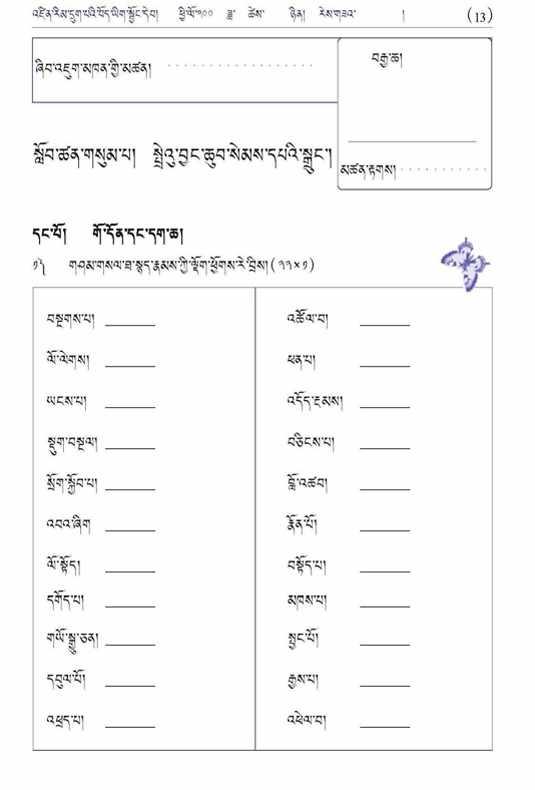 འཛིན་རིམ་དྲུག་པའི་བོད་ཡིག་སྦྱོང་དེབ། ཕྱི་ལོ་༢༠༠ ཟླ་ ཚེས་ ཉིན། རེས་གཟའ་ ། (13)
ཞིབ་འཇུག་མཁན་གྱི་མཚན། ..................
བརྒྱ་ཆ།
སློབ་ཚན་གསུམ་པ། སྤྲེའུ་བྱང་ཆུབ་སེམས་དཔའི་སྒྲུང་།
མཚན་རྟགས། ...........
དང་པོ། གོ་དོན་དང་དག་ཆ།
༡༽ གཤམ་གསལ་ཐ་སྙད་རྣམས་ཀྱི་ལྡོག་ཕྱོགས་རེ་བྲིས། ( ༢༢×༡ )
བསྔགས་པ། ______ འཚོལ་བ། ______
ལོ་ལེགས། ______ ཕན་པ། ______
ཡངས་པ། ______ འདོད་རྔམས། ______
སྡུག་བསྔལ། ______ བཅིངས་པ། ______
སྲོག་སྐྱོབ་པ། ______ བློ་འཚབ། ______
འབའ་ཞིག ______ རྣོན་པོ། ______
ལོ་སྟོད། ______ བསྟོད་པ། ______
དགོད་པ། ______ མཁས་པ། ______
གཡོ་སྒྱུ་ཅན། ______ སྤྱང་པོ། ______
དབུལ་པོ། ______ རྒྱས་པ། ______
འཕྲད་པ། ______ འཕེལ་བ། ______